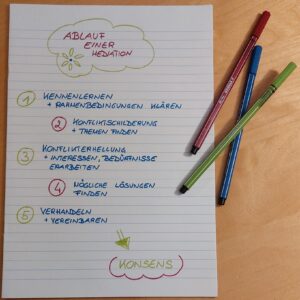 ABLAUF
EINER
MEDIATION
1 KENNENLERNEN
+ RAHMENBEDINGUNGEN KLÄREN
2 KONFLIKTSCHILDERUNG
+ THEMEN FINDEN
3 KONFLIKTERHELLUNG
+ INTERESSEN, BEDÜRFNISSE
ERARBEITEN
4 MÖGLICHE LÖSUNGEN
FINDEN
5 VERHANDELN
+ VEREINBAREN
KONSENS